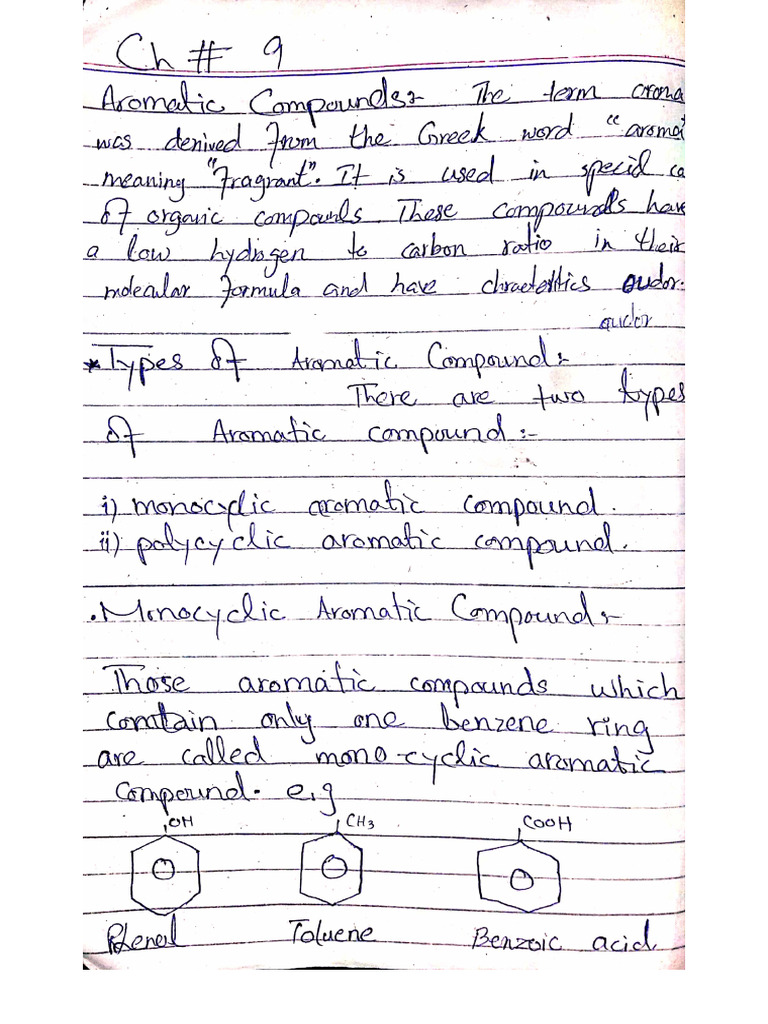 Ch # 9
Aromatic Compounds:- The term aroma
was derived from the Greek word "aroma"
meaning "Fragrant". It is used in special ca
of organic compounds. These compounds have
a low hydrogen to carbon ratio in their
molecular formula and have chracteritics oudor.
oudor
* Types of Aromatic Compound:-
There are two types
of Aromatic compound:-
i) monocyclic aromatic compound.
ii) polycyclic aromatic compound.
. Monocyclic Aromatic Compound:-
Those aromatic compounds which
contain only one benzene ring
are called mono-cyclic aromatic
compound. e.g
OH CH3 COOH
Toluene Benzoic acid